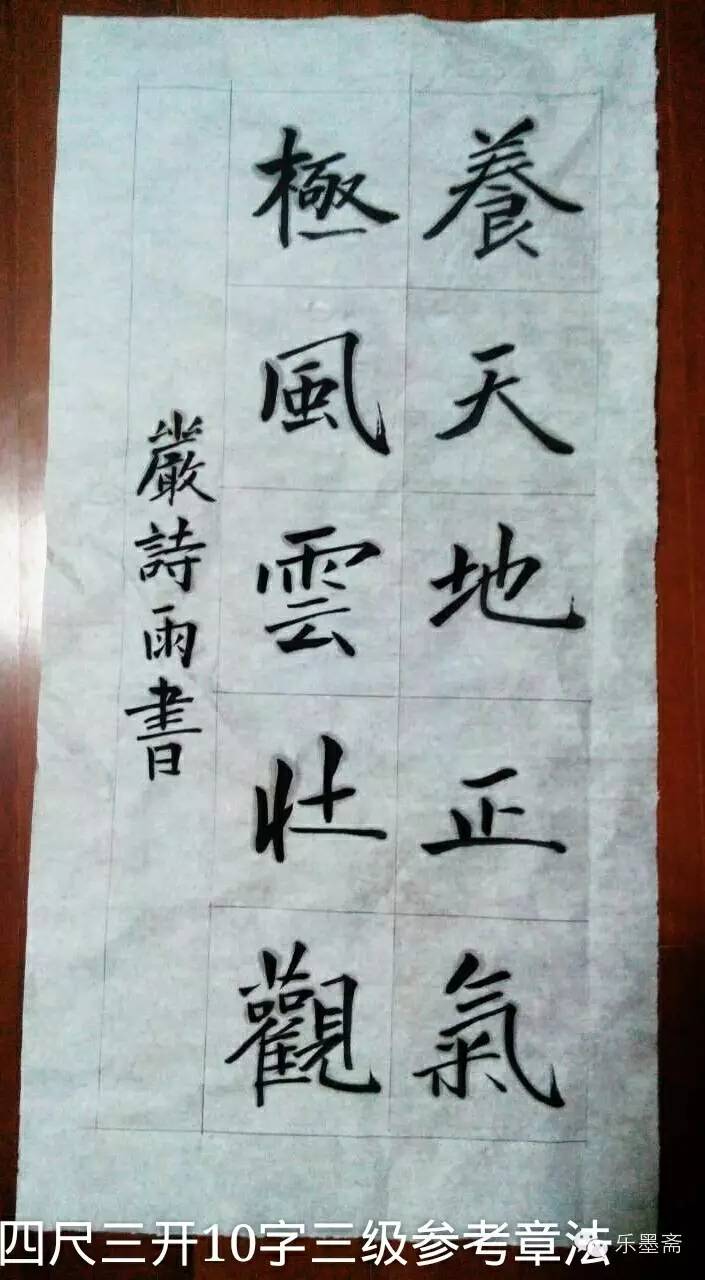 養天地正氣
極風雲壯觀
嚴詩雨書
四尺三开10字三级参考章法
乐墨斋